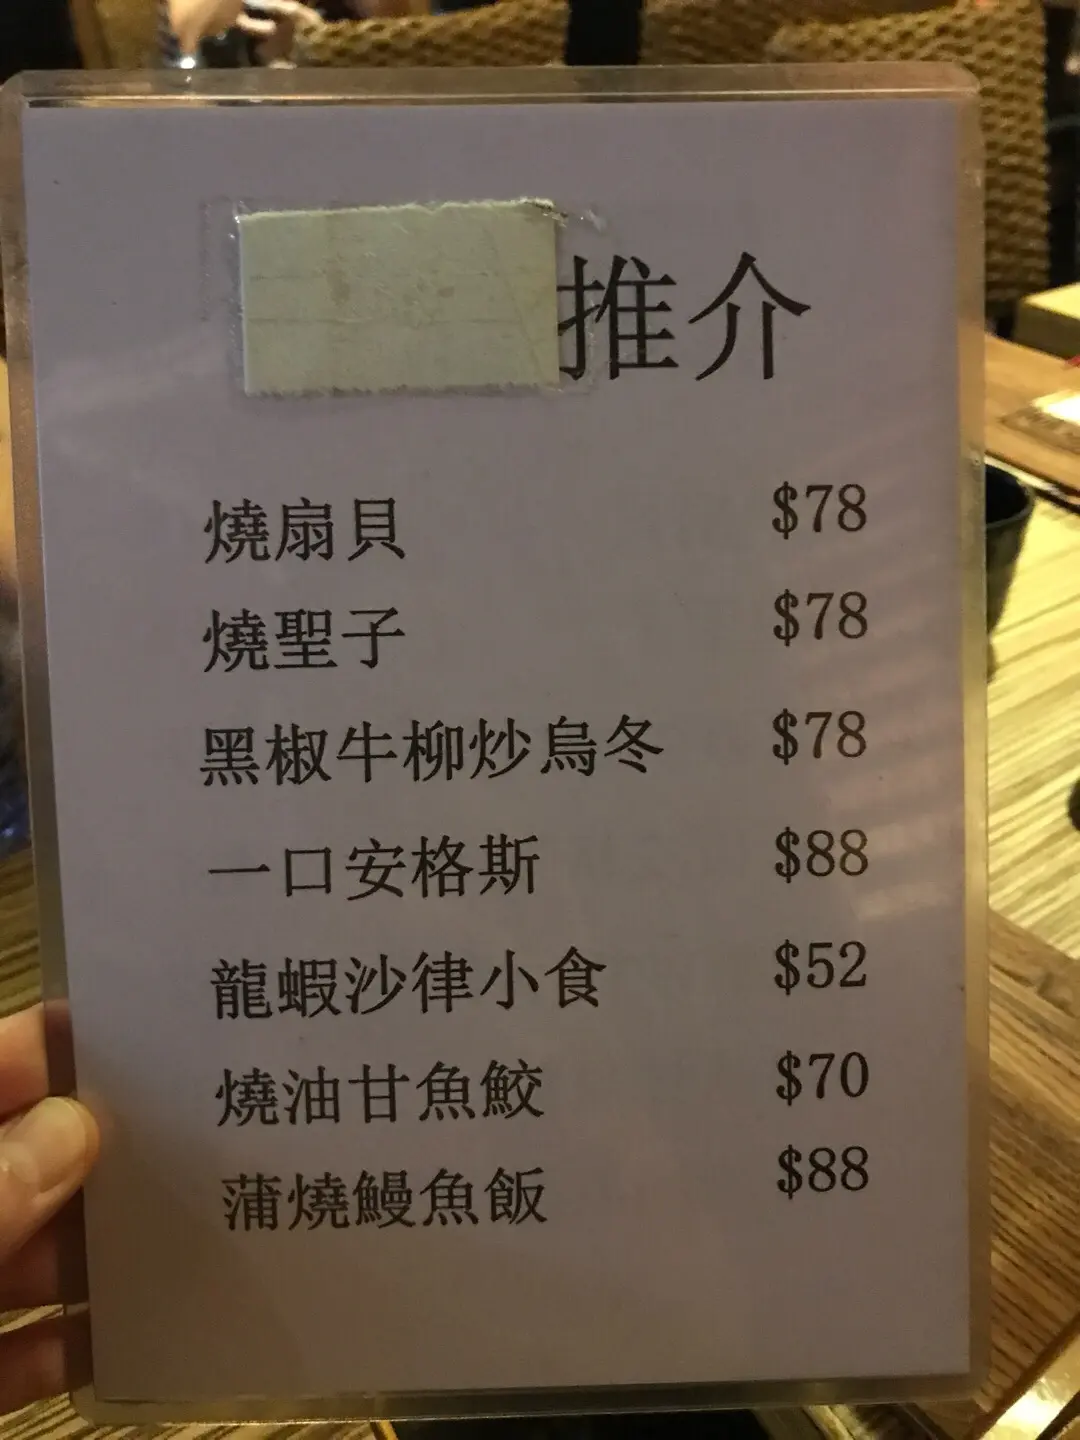 推介
燒扇貝 $78
燒聖子 $78
黑椒牛柳炒烏冬 $78
一口安格斯 $88
龍蝦沙律小食 $52
燒油甘魚鮫 $70
蒲燒鰻魚飯 $88